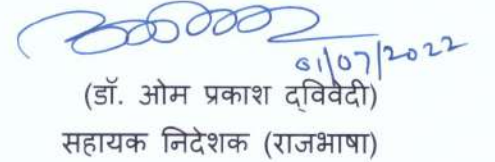 01/07/2022
(डॉ. ओम प्रकाश द्विवेदी)
सहायक निदेशक (राजभाषा)